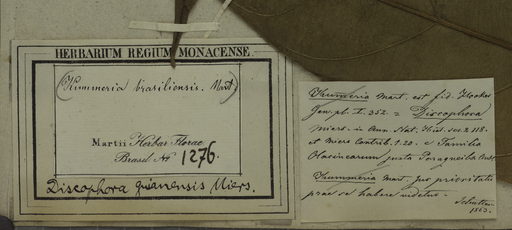 HERBARIUM REGIUM MONACENSE.
(Kummeria brasiliensis. Mart)
Martii Herbar. Florae
Brasil. No 1276.
Discophora guianensis Miers.
Kummeria Mart. est fid. Hooker
Gen. pl. I. 352. = Discophora
Miers. in Ann. Nat. Hist. ser. 2.
et Miers Contrib. 1. 20. e Familia
Olacinearum juxta Poraqueiba Aubl.
Kummeria Mart. jus prioritatis
prae se habere videtur.